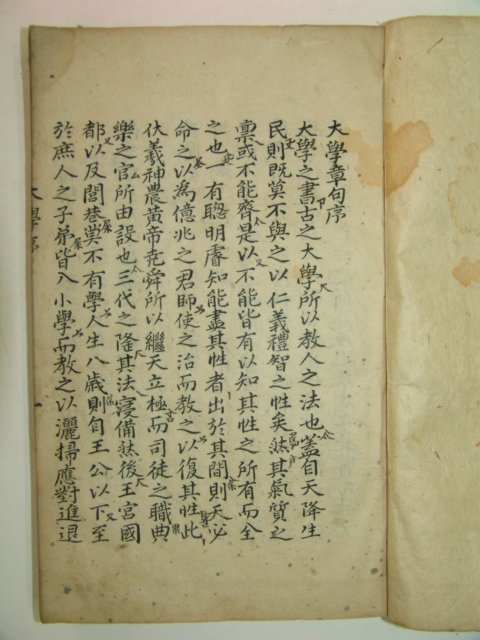 大學章句序
大學之書古之大學所以教人之法也蓋自天降生
民則既莫不與之以仁義禮智之性矣然其氣質之
稟或不能齊是以不能皆有以知其性之所有而全
之也一有聰明睿知能盡其性者出於其間則天必
命之以為億兆之君師使之治而教之以復其性此
伏羲神農黃帝堯舜所以繼天立極而司徒之職典
樂之官所由設也三代之隆其法寖備然後王宮國
都以及閭巷莫不有學人生八歲則自王公以下至
於庶人之子弟皆入小學而教之以灑掃應對進退
大學序